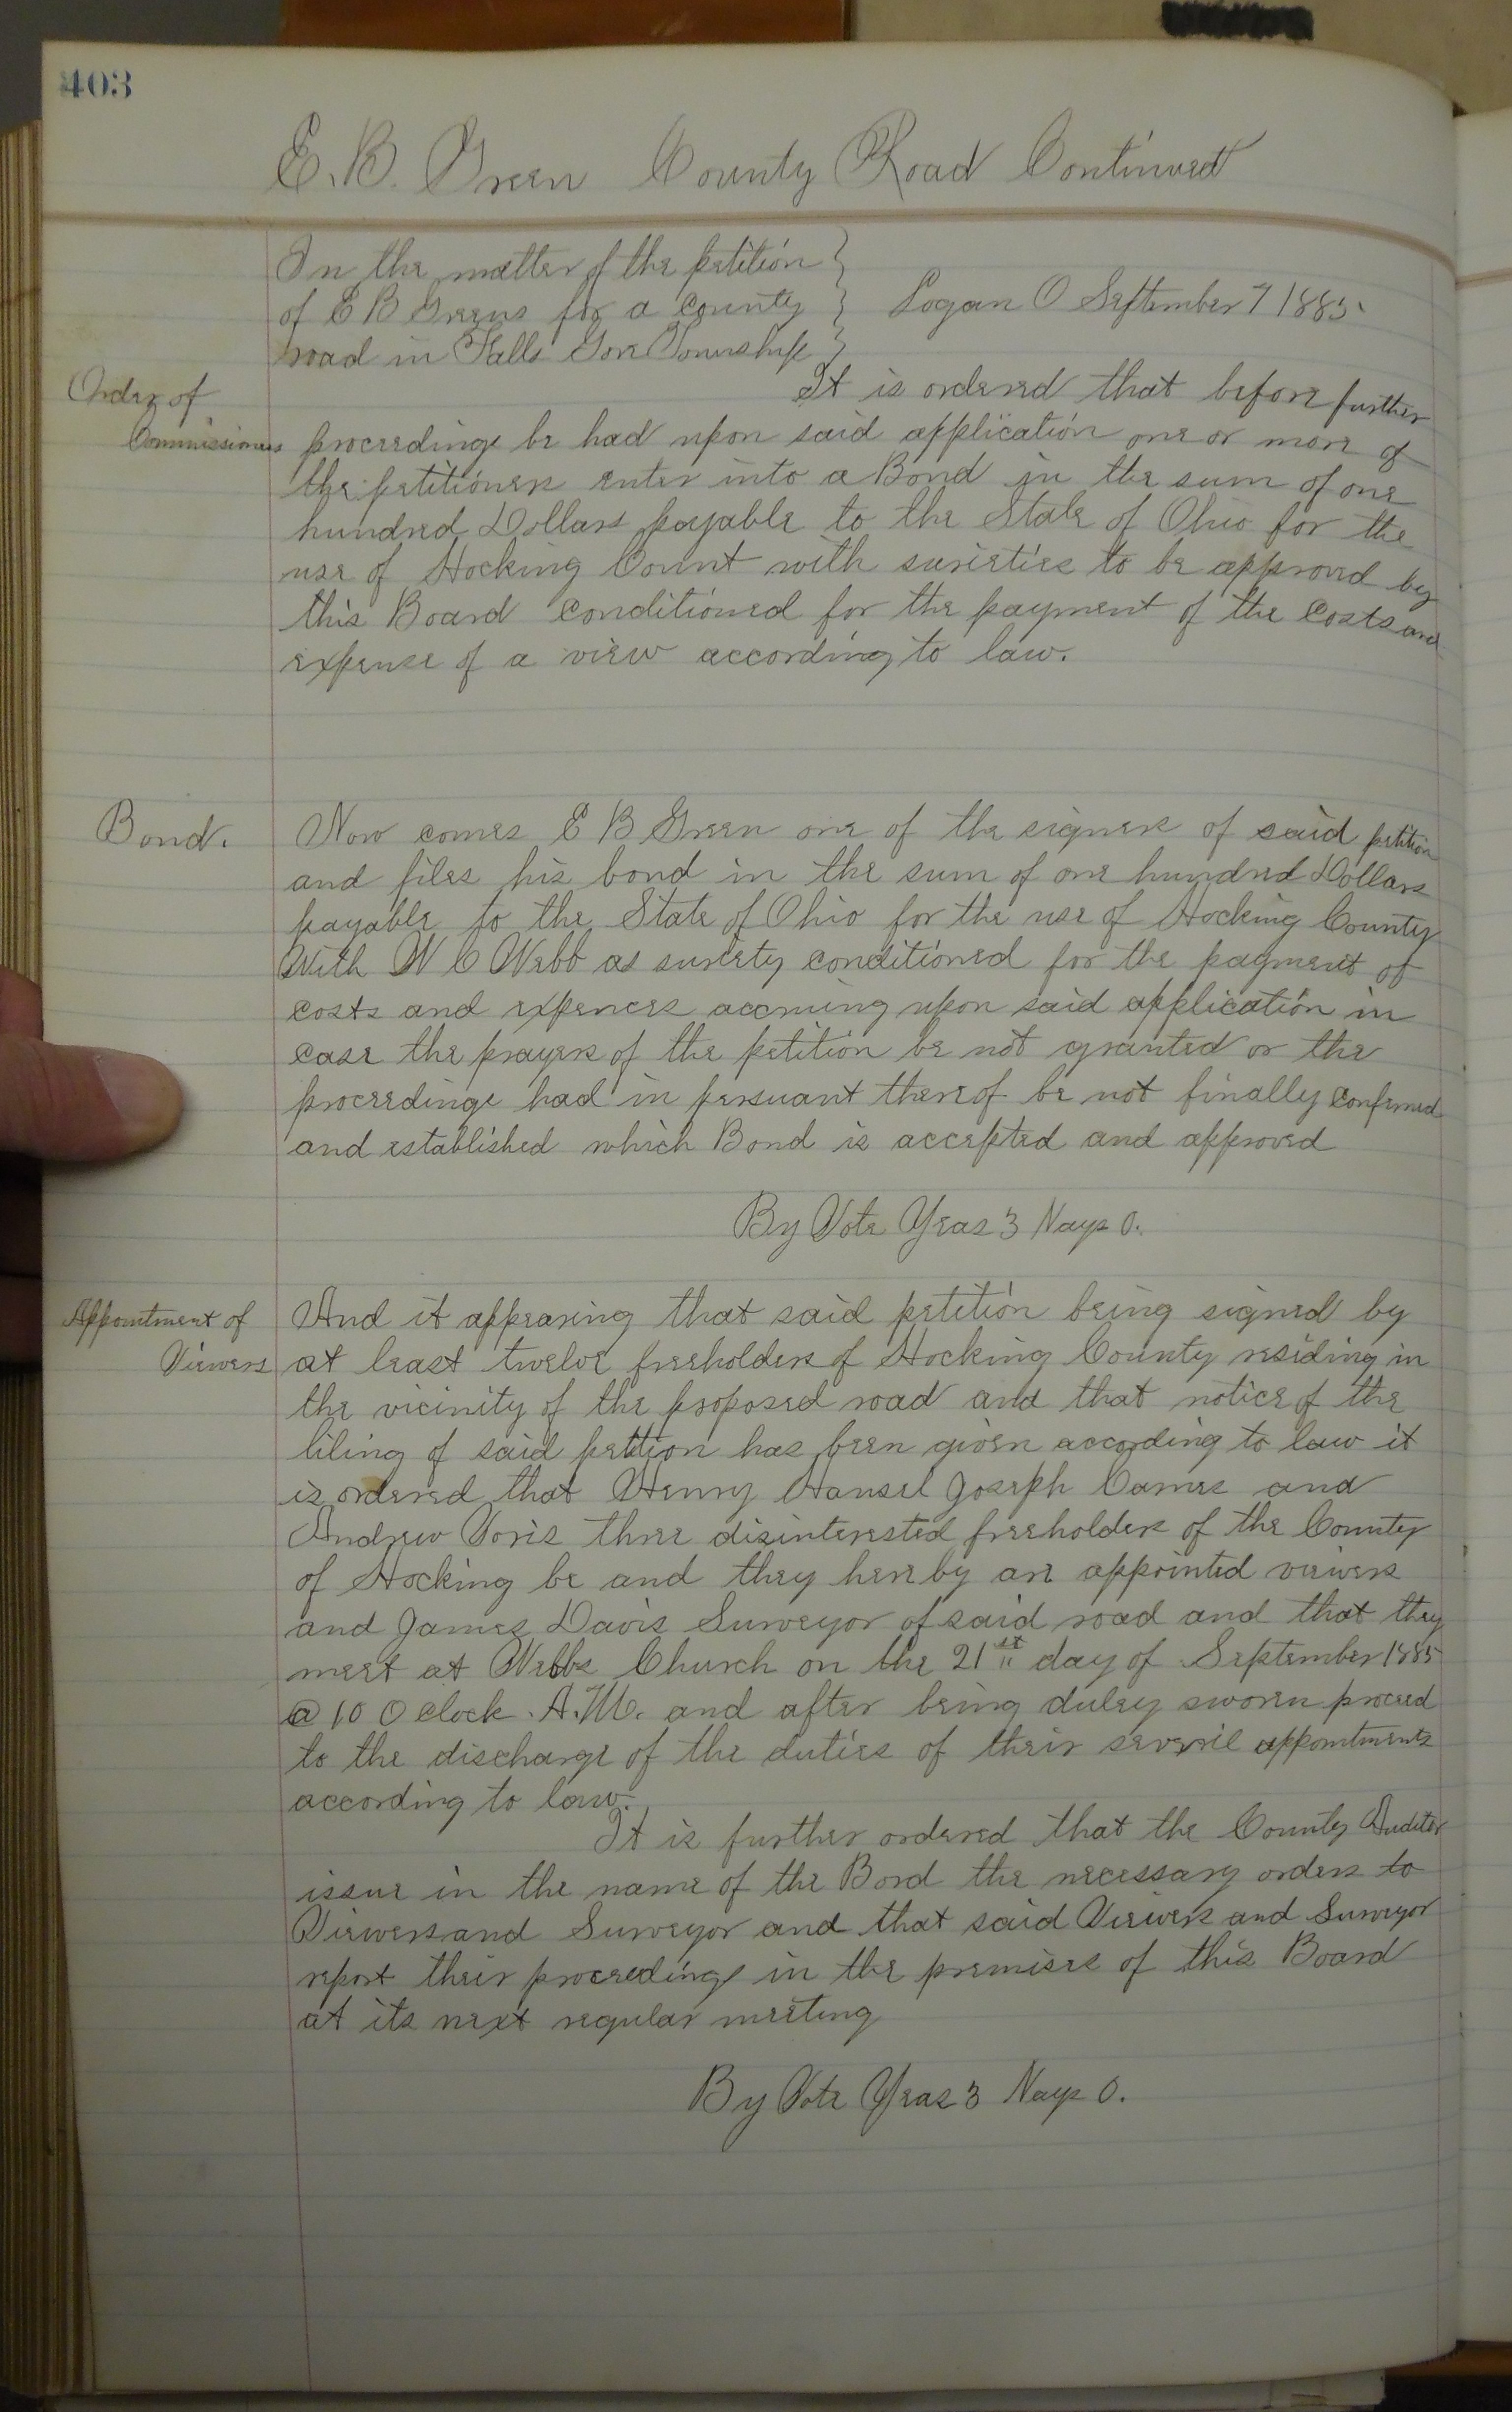 403
E. B. Green County Road Continued
In the matter of the petition
of E B Greens for a County
road in Falls Gore Township
Logan O September 7 1885
Order of
Commissioners
It is ordered that before further
proceedings be had upon said application one or more of
the petitioners enter into a Bond in the sum of one
hundred Dollars payable to the State of Ohio for the
use of Hocking Count with surieties to be approved by
this Board conditioned for the payment of the Costs and
expense of a view according to law.
Bond.
Now comes E B Green one of the signers of said petition
and files his bond in the sum of one hundred Dollars
payable to the State of Ohio for the use of Hocking County
With W C Webb as surety conditioned for the payment of
costs and expences accruing upon said application in
case the prayers of the petition be not granted or the
proceedings had in persuant thereof be not finally confirmed
and established which Bond is accepted and approved
By Vote Yeas 3 Nays 0.
Appointment of
Viewers
And it appearing that said petition being signed by
at least twelve freeholders of Hocking County residing in
the vicinity of the proposed road and that notice of the
liling of said petition has been given according to law it
is ordered that Henry Hansel Joseph Carnes and
Andrew Voris three disinterested freeholders of the County
of Hocking be and they hereby are appointed viewers
and James Davis Surveyor of said road and that they
meet at Webbs Church on the 21st day of September 1885
@ 10 O Clock A.M. and after being duley sworn proceed
to the discharge of the duties of their severil appointments
according to law.
It is further ordered that the County Auditor
issue in the name of the Bord the necessary orders to
Viewers and Surveyor and that said Viewers and Surveyor
report their proceedings in the premises of this Board
at its next regular meeting
By Vote Yeas 3 Nays 0.